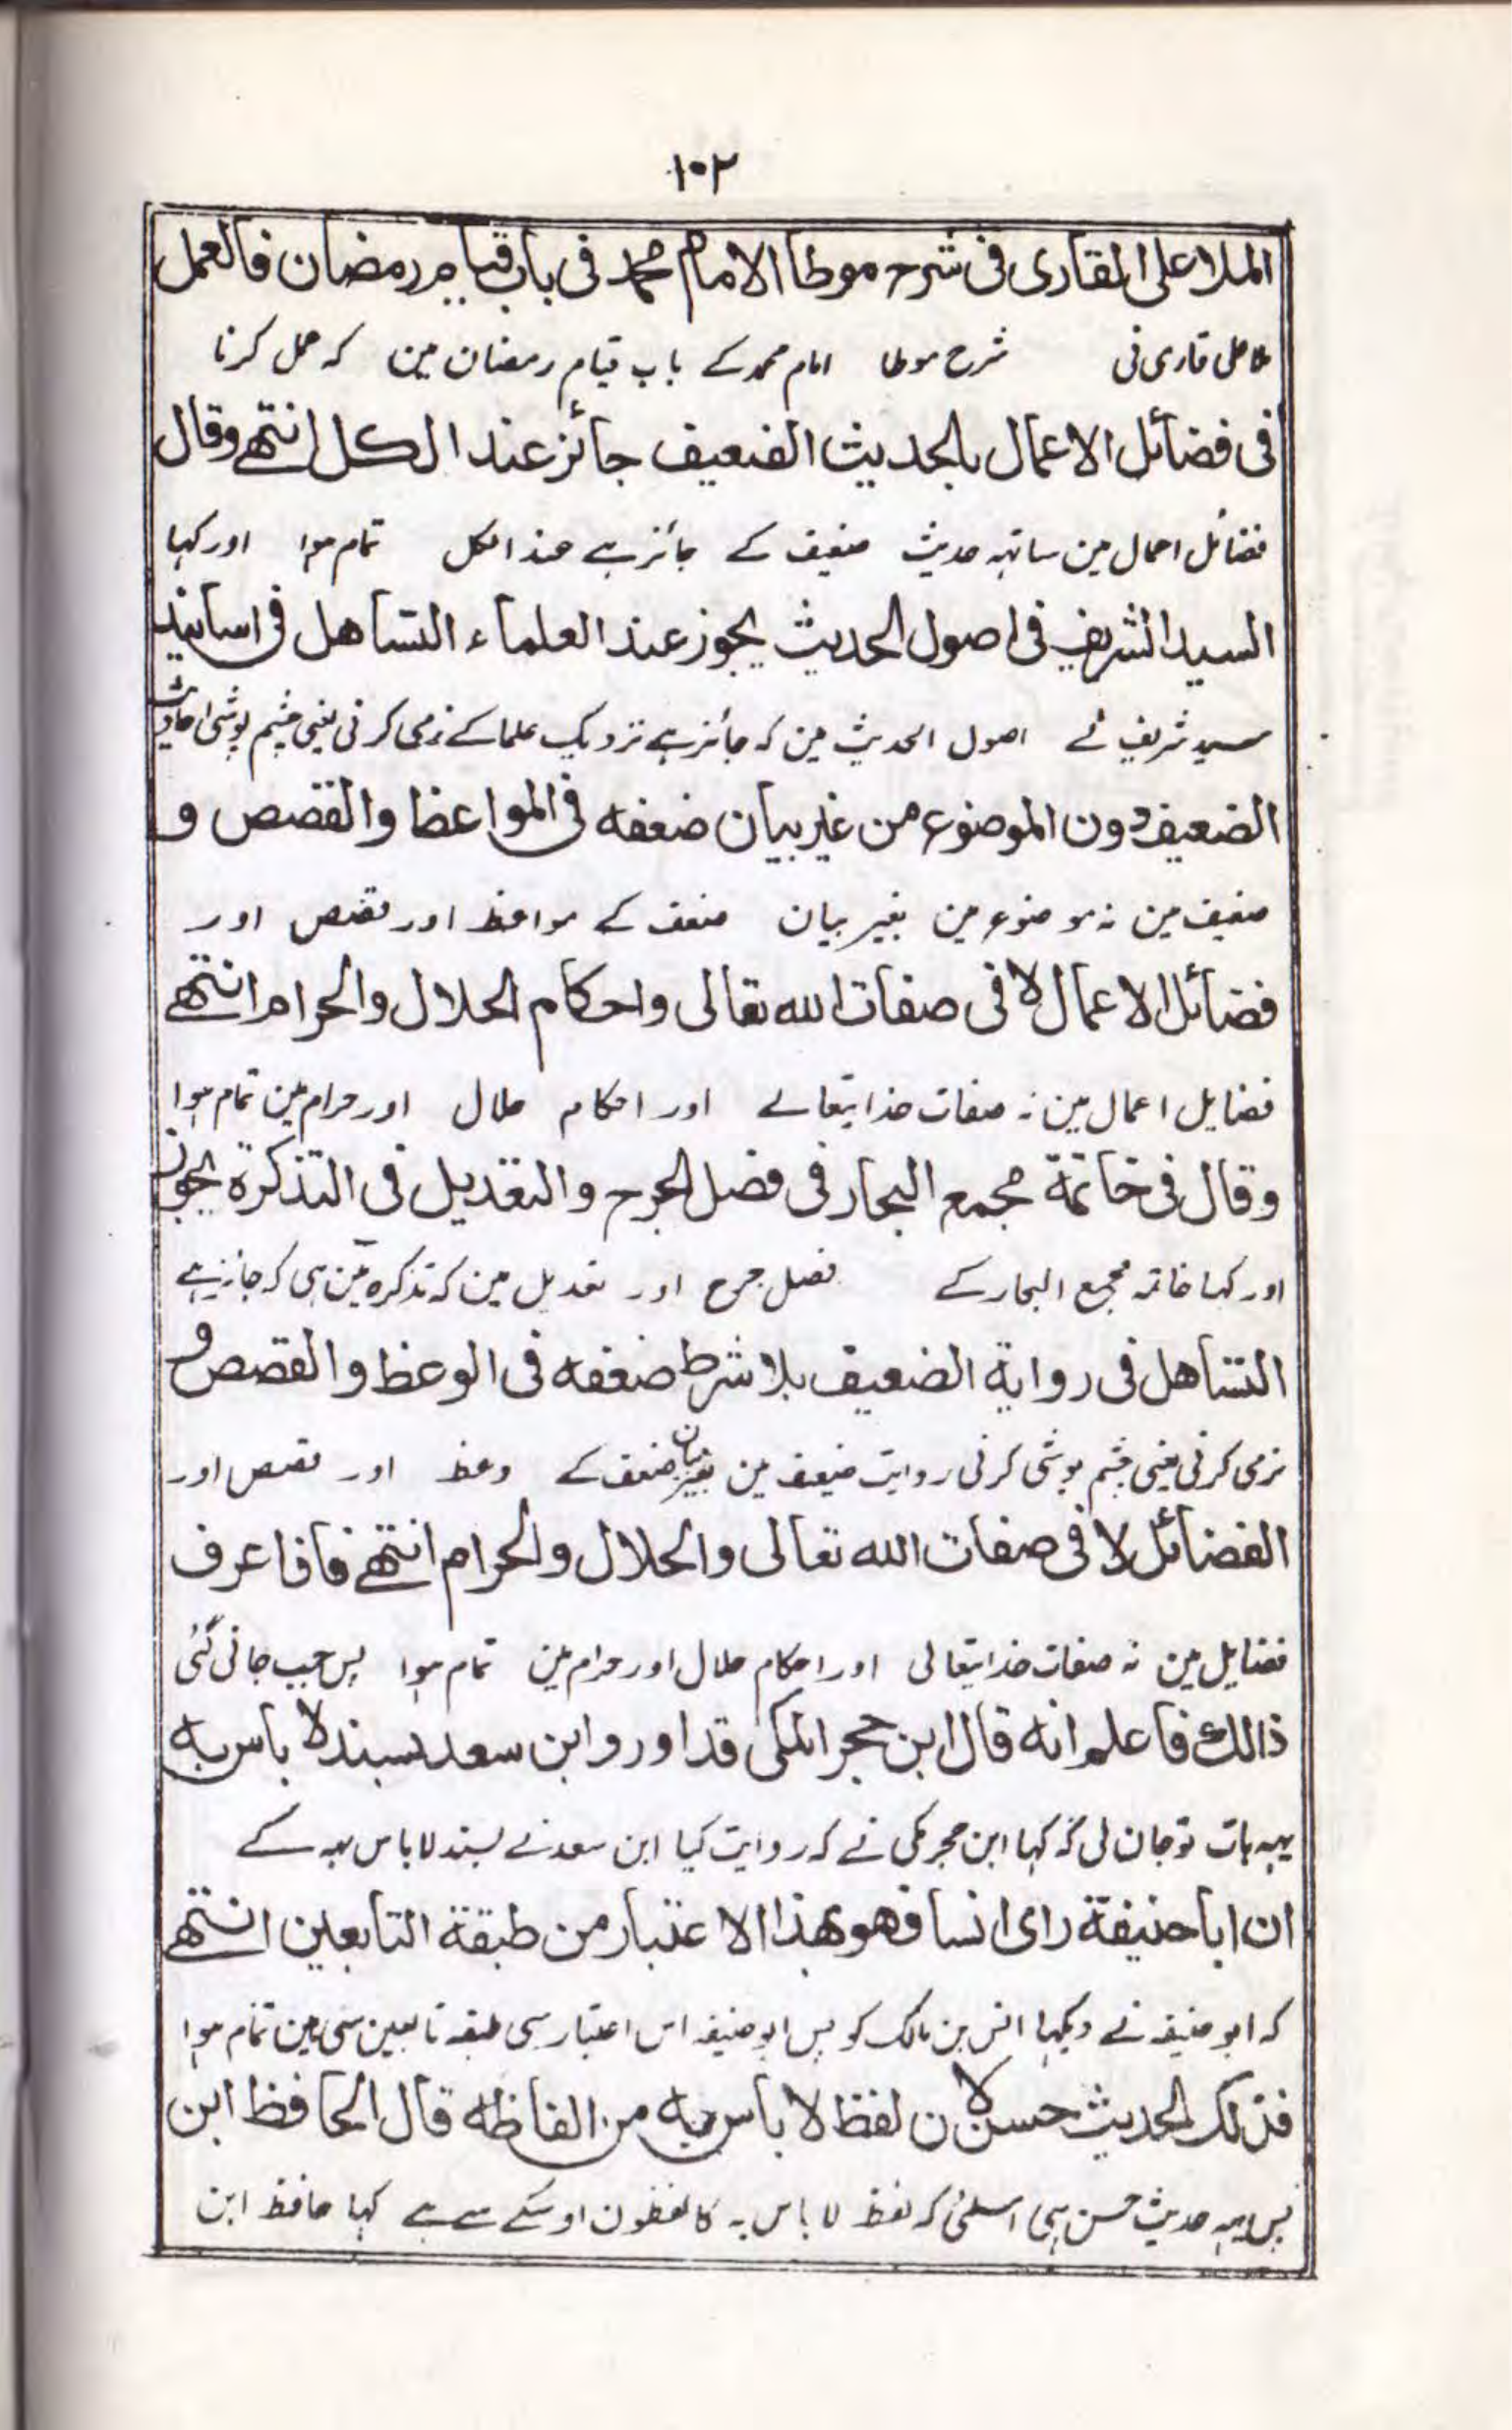 ۱۰۲
الملا علی القاری فی شرح موطا الامام محمد فی باب قیام رمضان فالعمل
ملا علی قاری نی شرح موطا امام محمد کے باب قیام رمضان مین کہ عمل کرنا
فی فضائل الاعمال بالحدیث الضعیف جائز عند الکل انتھے وقال
فضائل اعمال مین ساتہہ حدیث ضعیف کے جائز ہے عند الکل تمام ہوا اور کہا
السید الشریف فی اصول الحدیث یجوز عند العلماء التساھل فی اسانید
سید شریف نے اصول الحدیث مین کہ جائز ہے نزدیک علما کے نرمی کرنی یعنی چشم پوشی احادیث
الضعیف دون الموضوع من غیر بیان ضعفه فی المواعظ والقصص و
ضعیف مین نہ موضوع مین بغیر بیان ضعف کے مواعظ اور قصص اور
فضائل الاعمال لا فی صفات الله تعالی واحکام الحلال والحرام انتھے
فضایل اعمال مین نہ صفات خدایتعالے اور احکام حلال اور حرام مین تمام ہوا
وقال فی خاتمة مجمع البحار فی فصل الجرح والتعدیل فی التذکرة یجوز
اور کہا خاتمہ مجمع البحار کے فصل جرح اور تعدیل مین کہ تذکرہ مین ہی کہ جائز ہے
التساھل فی روایة الضعیف بلا شرط ضعفه فی الوعظ والقصص و
نرمی کرنی یعنی چشم پوشی کرنی روایت ضیعف مین بغیر بیان ضعف کے وعظ اور قصص اور
الفضائل لا فی صفات الله تعالی والحلال والحرام انتھے فاذا عرف
فضایل مین نہ صفات خدایتعالی اور احکام حلال اور حرام مین تمام ہوا پس جب جانی گئی
ذالك فاعلم انه قال ابن حجر المکی قد اورد ابن سعد بسند لا باس به
یہہ بات تو جان لی کہ کہا ابن حجر مکی نے کہ روایت کیا ابن سعد نے بسند لا باس بہ کے
ان ابا حنیفة رای انسا فھو بھذا الاعتبار من طبقة التابعین انتھے
کہ ابو حنیفہ نے دیکہا انس بن مالک کو پس ابو حنیفہ اس اعتبار سی طبقہ تابعین سی ہین تمام ہوا
فذلک الحدیث حسن لان لفظ لا باس به من الفاظه قال الحافظ ابن
پس یہہ حدیث حسن ہی اسلئی کہ لفظ لا باس بہ کا لفظون اوسکے سے ہے کہا حافظ ابن